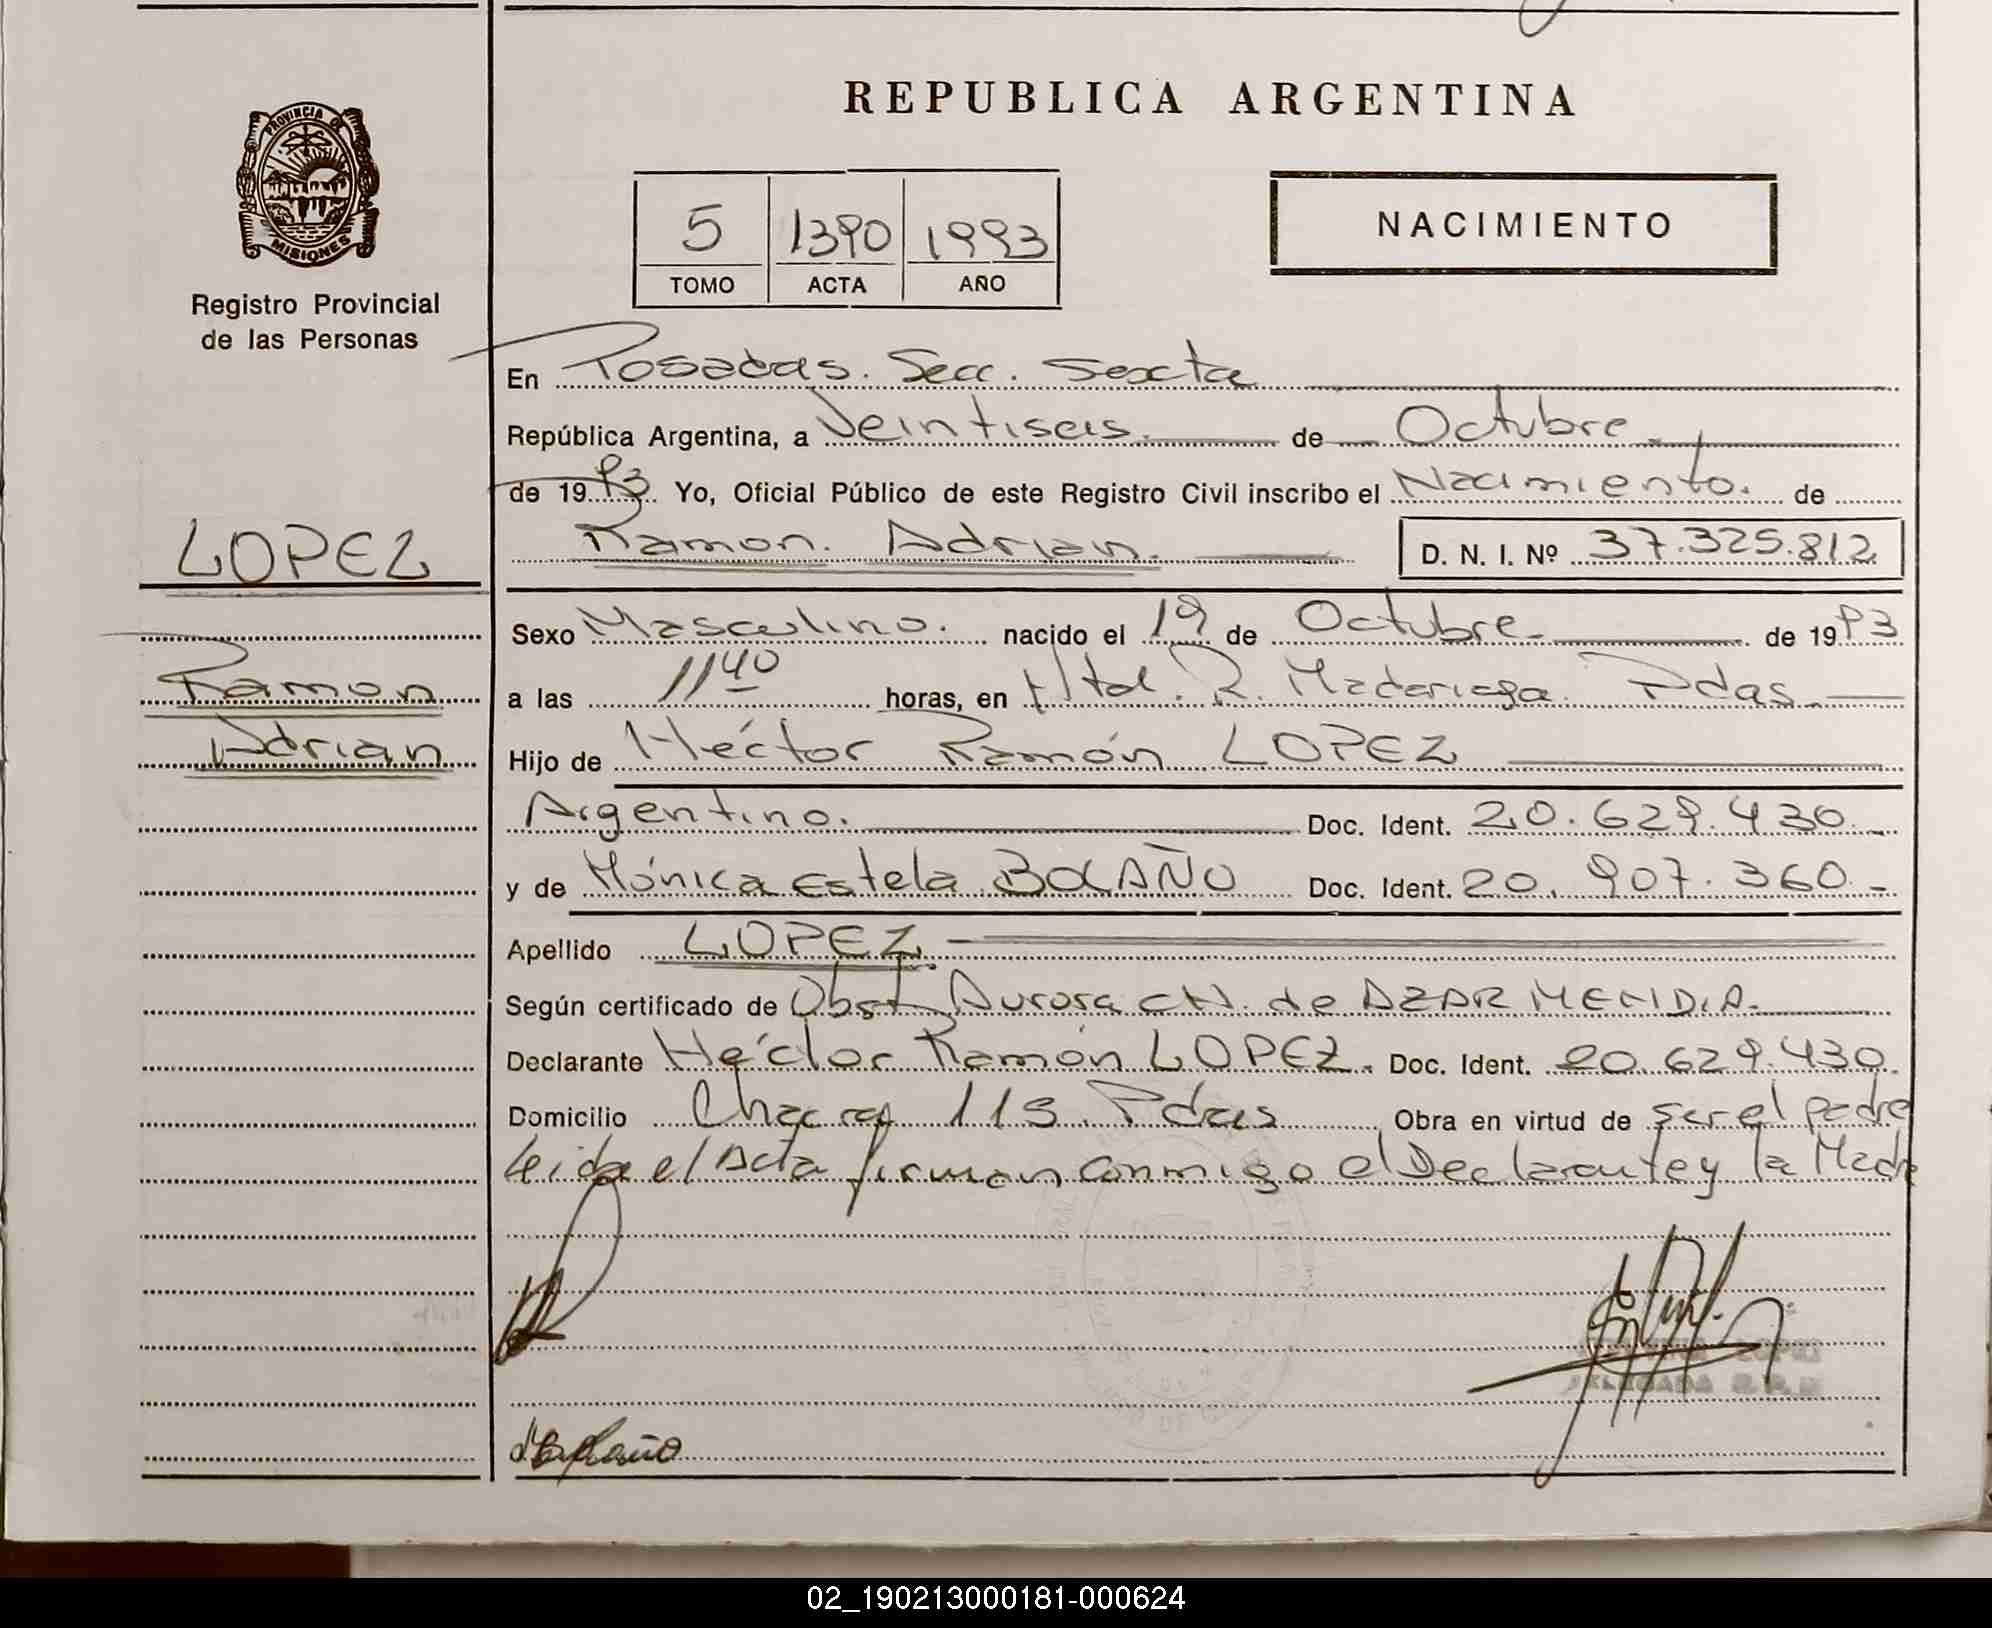 REPUBLICA ARGENTINA
PROVINCIA DE
MISIONES
Registro Provincial
de las Personas
5 1390 1993
TOMO ACTA AÑO
NACIMIENTO
En Posadas. Secc. Sexta
República Argentina, a Veintiseis. de Octubre.
de 1993. Yo, Oficial Público de este Registro Civil inscribo el Nacimiento. de
LOPEZ
Ramon. Adrian. D. N. I. Nº 37.325.812
Sexo Masculino. nacido el 19 de Octubre. de 1993
Ramon
Adrian
a las 11 40 horas, en Htal. R. Madariaga. Pdas.
Hijo de Héctor Ramón LOPEZ
Argentino. Doc. Ident. 20.629.430.
y de Mónica Estela BOLAÑO Doc. Ident. 20.907.360.
Apellido LOPEZ
Según certificado de Obst. Aurora CH. de AZARMENDIA.
Declarante Héctor Ramón LOPEZ. Doc. Ident. 20.629.430.
Domicilio Chacra 115. Pdas Obra en virtud de ser el padre
Leida el Acta firman conmigo el Declarante y la Madre
02_190213000181-000624